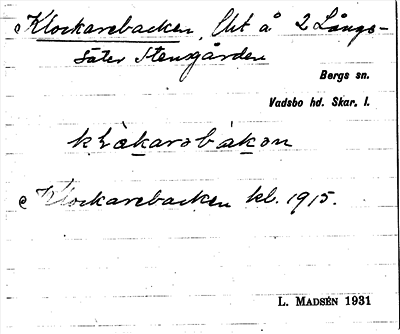 Klockarebacken, Lht å 2 Långs-
säter Stensgården
Bergs sn.
Vadsbo hd. Skar. l.
Klockarebacken kl. 1915.
L. MADSÉN 1931